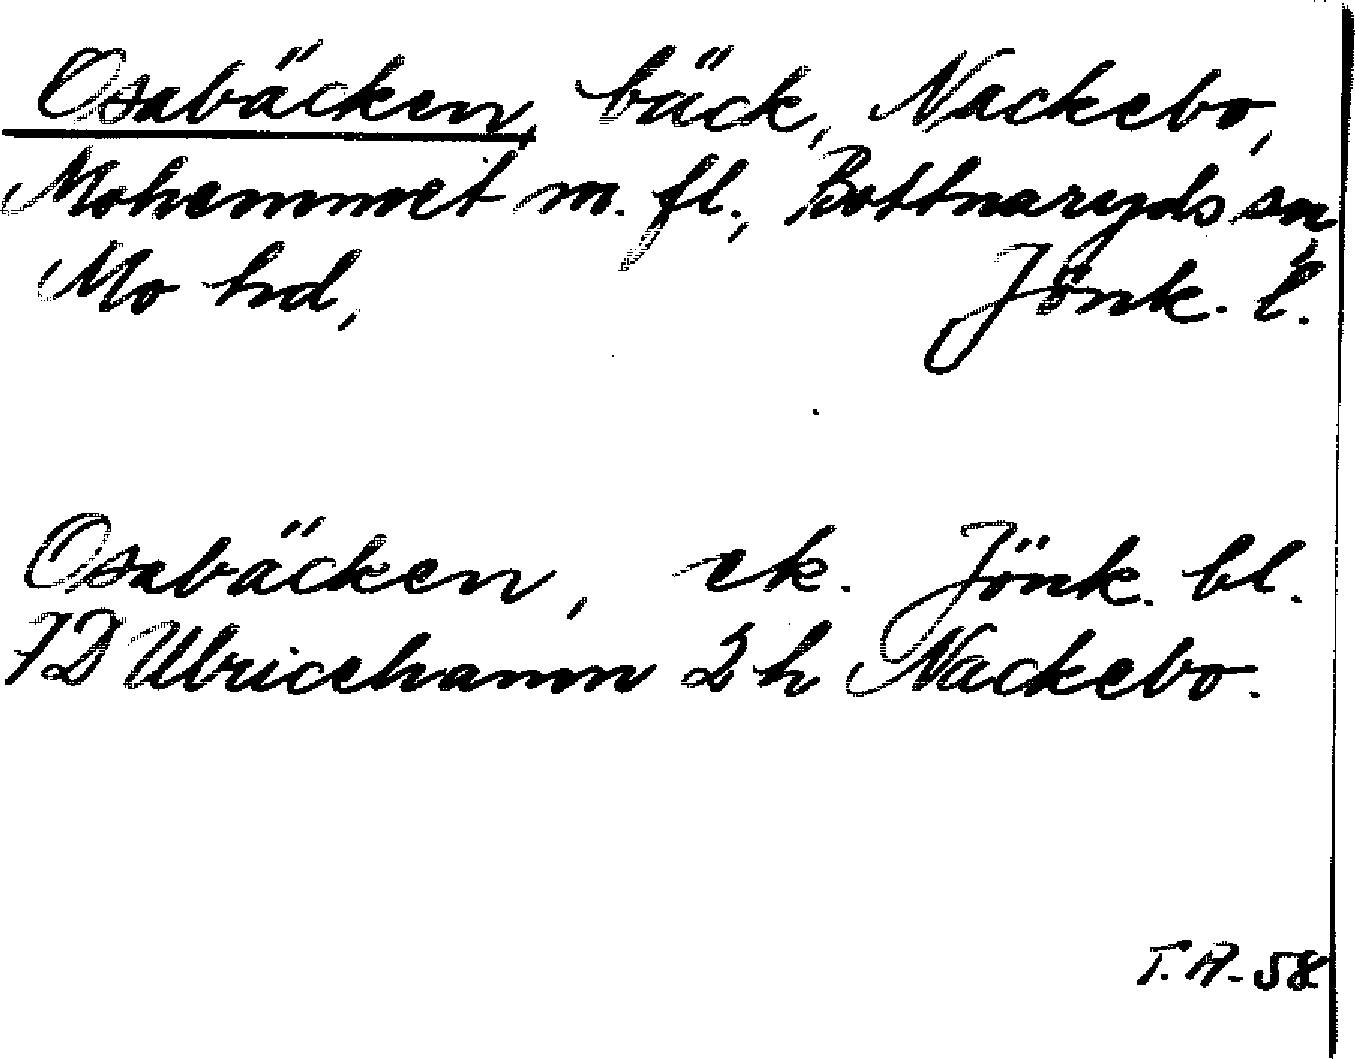 Osabäcken, bäck, Nackebo,
Mohemmet m. fl., Bottnaryds sn,
Mo hd, Jönk. l.
Osabäcken, ek. Jönk. bl.
7D Ulricehamn 2 h Nackebo.
T.A. 58